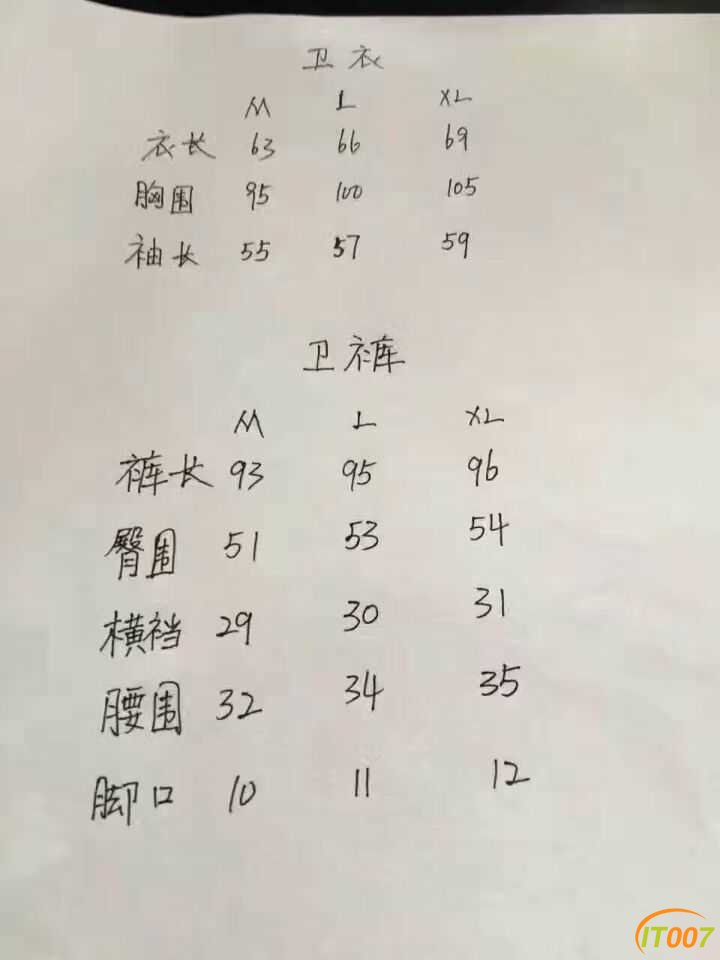 卫衣
M L XL
衣长 63 66 69
胸围 95 100 105
袖长 55 57 59
卫裤
M L XL
裤长 93 95 96
臀围 51 53 54
横裆 29 30 31
腰围 32 34 35
脚口 10 11 12
IT007